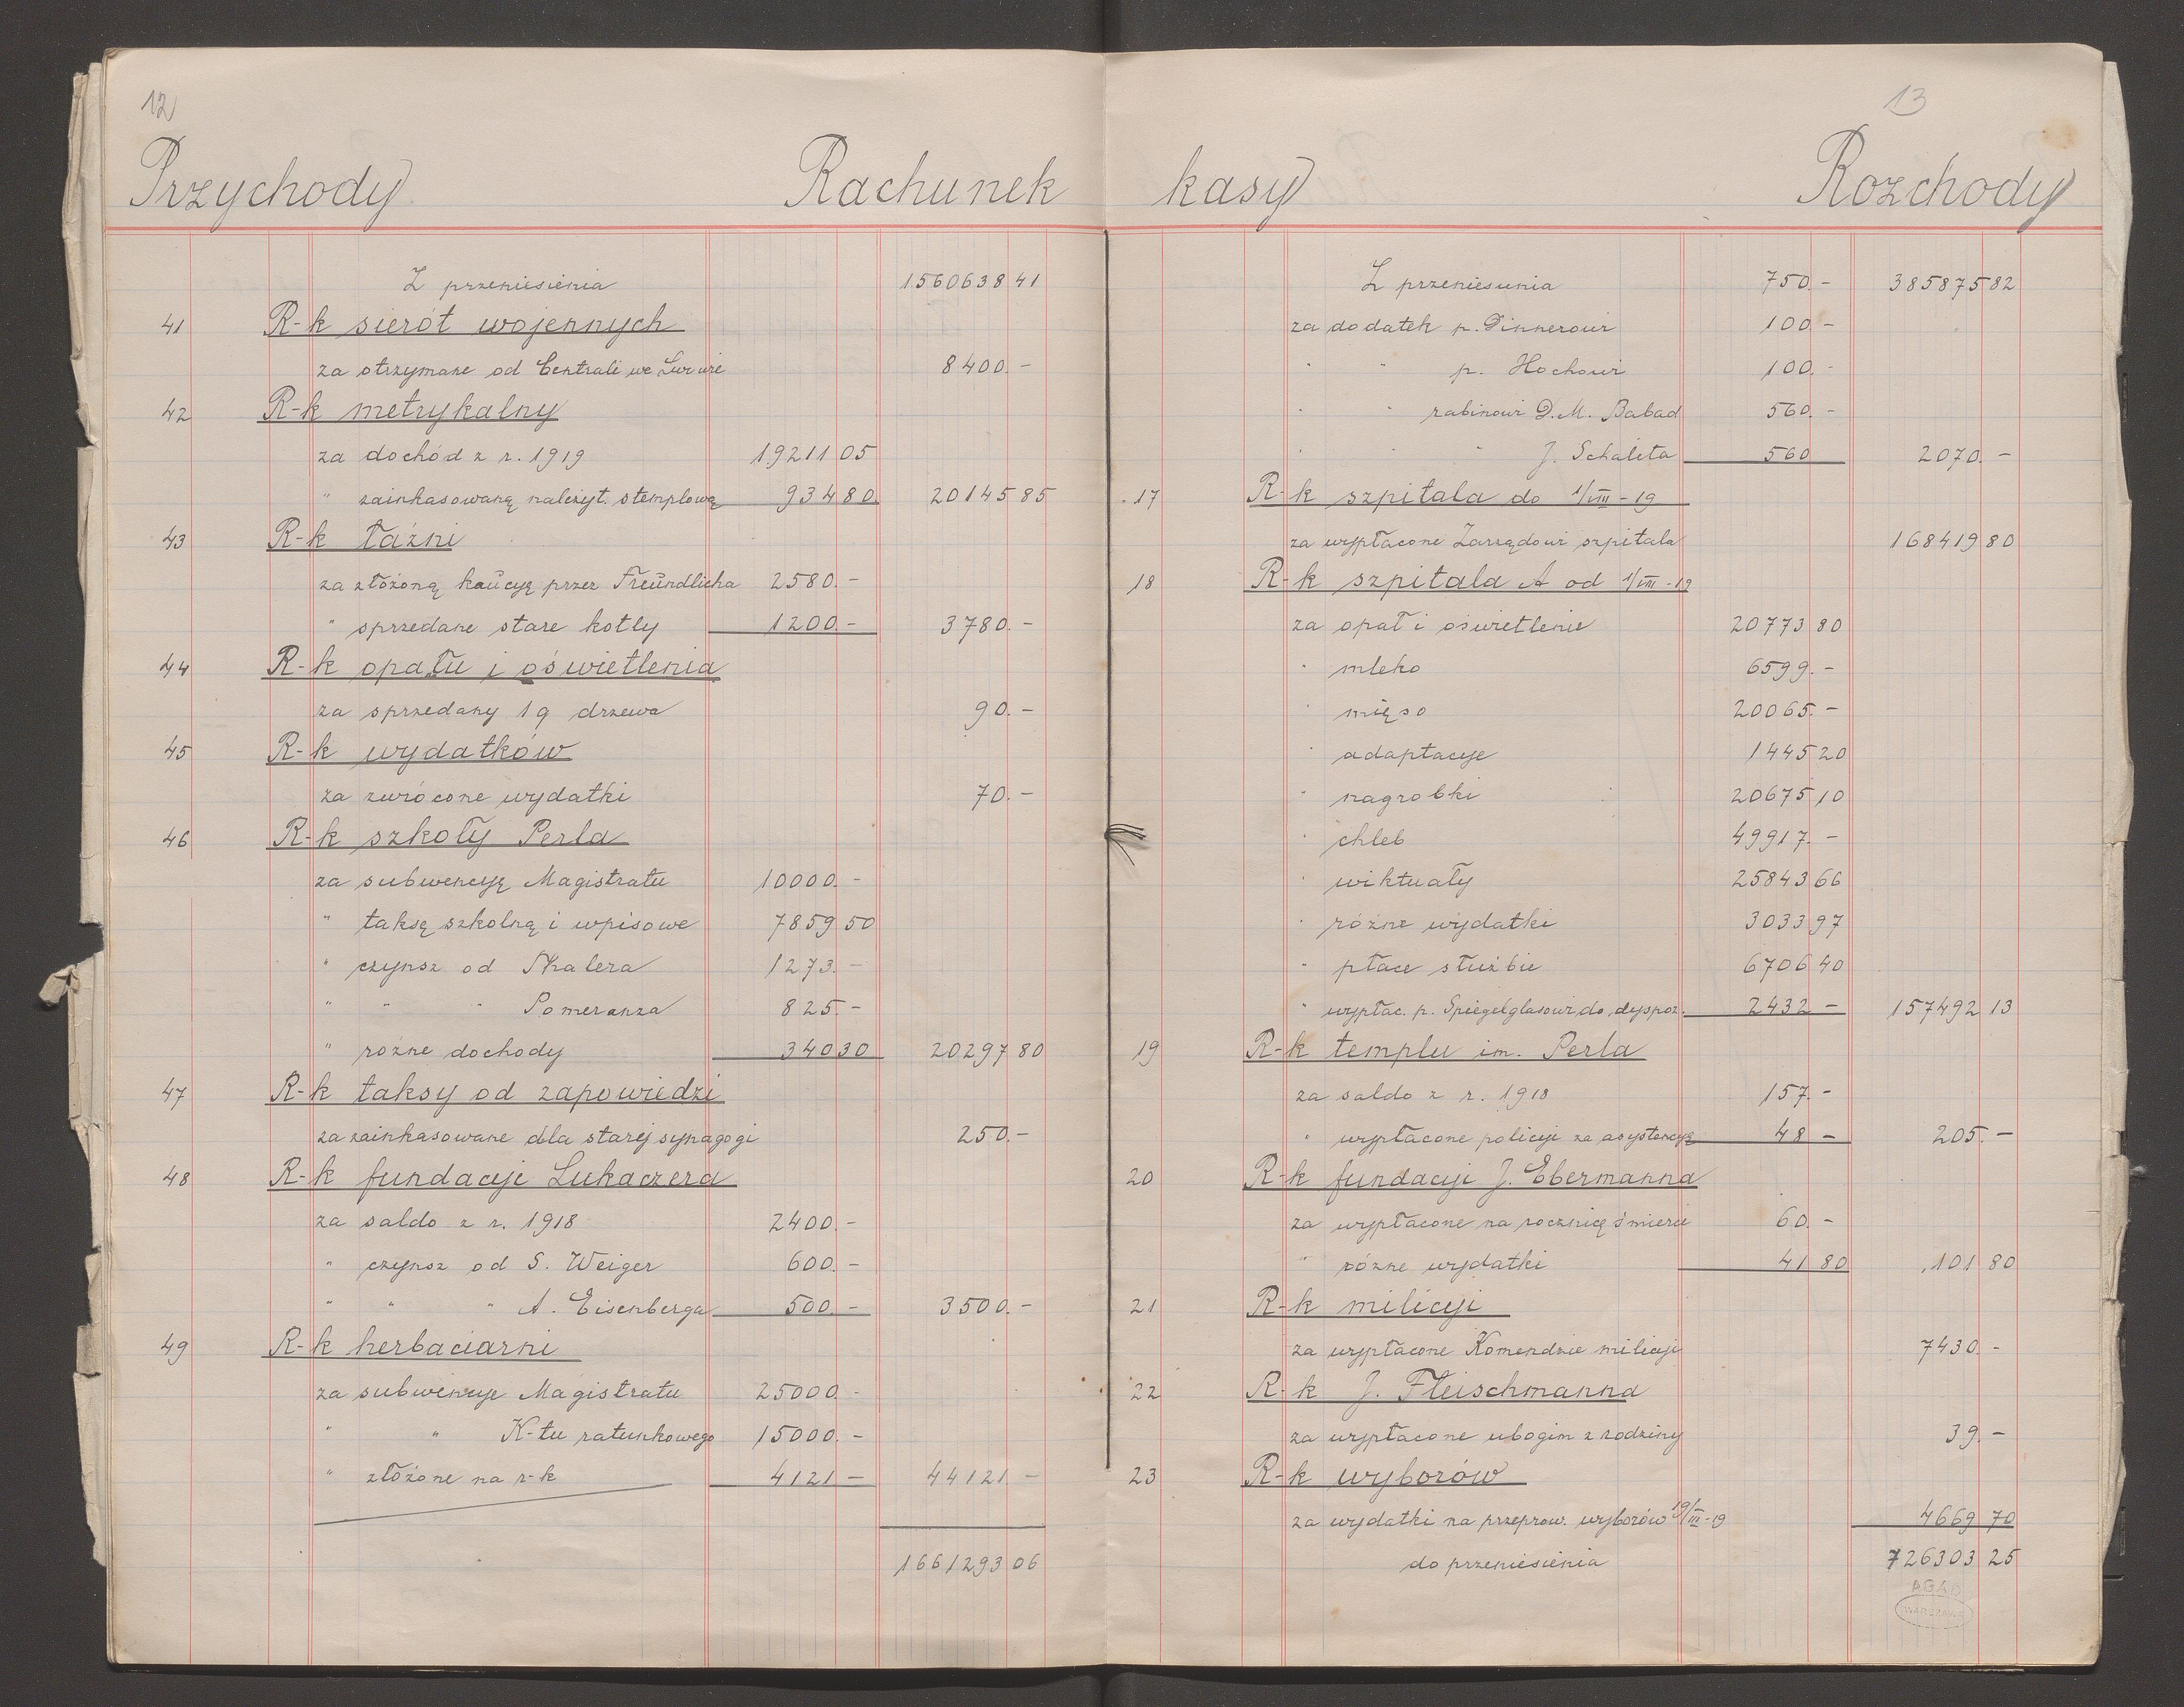 12
Przychody Rachunek
Z przeniesienia 1560638 41
41 R-k sierót wojennych
za otrzymane od Centrali we Lwowie 8400.-
42 R-k metrykalny
za dochód z r. 1919 19211 05
" zainkasowaną należyt. stemplową 934 80 20145 85
43 R-k łaźni
za złożoną kaucyę przez Freundlicha 2580.-
" sprzedane stare kotly 1200.- 3780.-
44 R-k opału i oświetlenia
za sprzedany 1 q drzewa 90.-
45 R-k wydatków
za zwrócone wydatki 70.-
46 R-k szkoły Perla
za subwencyę Magistratu 10000.-
" taksę szkolną i wpisowe 7859 50
" czynsz od Thalera 1273.-
" " " Pomeranza 825.-
" rożne dochody 340 30 20297 80
47 R-k taksy od zapowiedzi
za zainkasowane dla starej synagogi 250.-
48 R-k fundacyje Lukaczera
za saldo z r. 1918 2400.-
" czynsz od S. Weiger 600.-
" " " A. Eisenberga 500.- 3500.-
49 R-k herbaciarni
za subwencye Magistratu 25000.-
" " K-tu ratunkowego 15000.-
" złożone na r-k 4121 - 44121.-
1661293 06
13
kasy Rozchody
Z przeniesunia 750.- 385875 82
za dodatek p. Dinnerowi 100.-
" " p. Hochowi 100.-
" " rabinowi D. M. Babad 560.-
" " " J. Schaleta 560 2070.-
17 R-k szpitala do 1/VIII-19
za wypłacone Zarządowi szpitala 168419 80
18 R-k szpitala A od 1/VIII-19
za opał i oświetlenie 20773 80
" mleko 6599.-
" mięso 20065.-
" adaptacye 1445 20
" nagrobki 20675 10
" chleb 49917.-
" wiktuały 25843 66
" różne wydatki 3033 97
" płace służbie 6706 40
" wypłac. p. Spiegelglasowi do dyspoz. 2432 - 157492 13
19 R-k templu im. Perla
za saldo z r. 1918 157.-
" wypłacone policyi za asystencyę 48 - 205.-
20 R-k fundacyi J. Ebermanna
za wypłacone na rocznicę śmierci 60.-
" rózne wydatki 41 80 101 80
21 R-k milicyi
za wypłacone Komendzie milicyi 7430.-
22 R-k J. Fleischmanna
za wypłacone ubogim z rodziny 39.-
23 R-k wyborów
za wydatki na przeprow. wyborów 19/III-19 4669 70
do przeniesienia 726303 25
AGAD
WARSZAWA